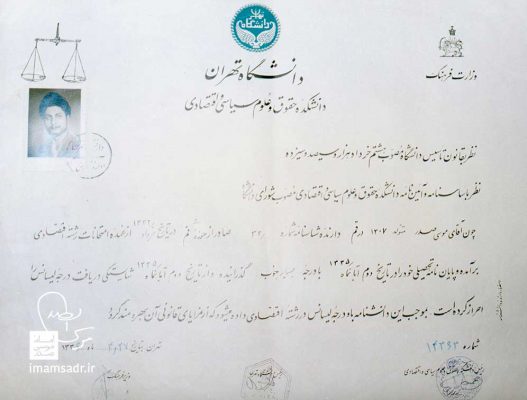 وزارت فرهنگ
دانشگاه تهران
دانشکده حقوق و علوم سیاسی و اقتصادی
نظر بقانون تاسیس دانشگاه مصوب هشتم خرداد هزار و سیصد و سیزده
نظر باساسنامه و آئین نامه دانشکده حقوق و علوم سیاسی و اقتصادی مصوب شورای دانشگاه
چون آقای موسی صدر متولد ۱۳۰۷ در قم دارنده شناسنامه شماره صادر از حوزه قم در تاریخ از عهده امتحانات رشته اقتصادی
برآمده و پایان نامه تحصیلی خود را در تاریخ دوم آبانماه ۱۳۳۵ با درجه بسیار خوب گذرانیده و از تاریخ دوم آبانماه ۱۳۳۵ شایستگی دریافت درجه لیسانس را
احراز کرده است. بموجب این دانشنامه باو درجه لیسانس در رشته اقتصادی داده میشود که از مزایای قانونی آن بهره مند گردد
شماره
تهران، بتاریخ
imamsadr.ir